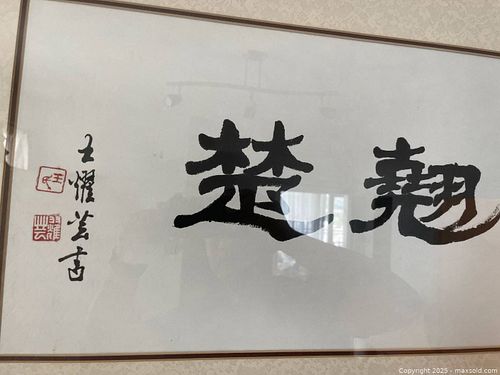 翹楚
王耀芸書
王氏
耀芸
Copyright 2025 - maxsold.com